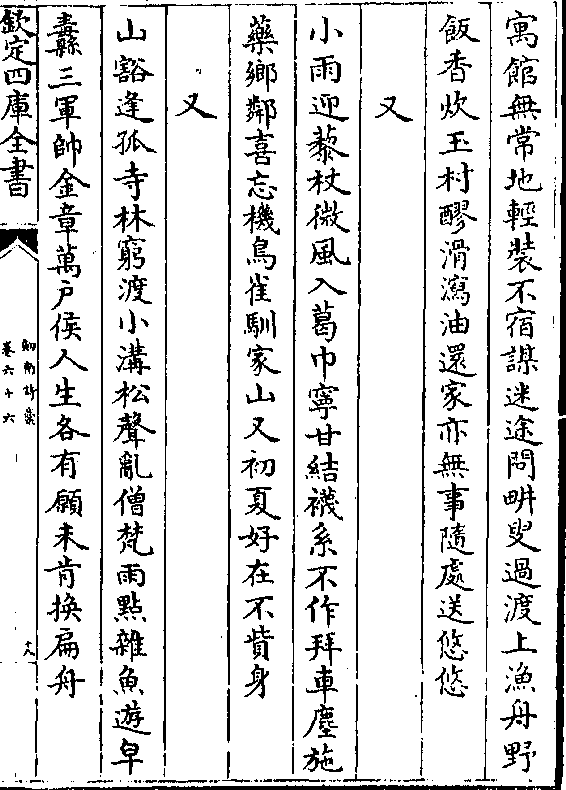 寓館無常地輕裝不宿謀迷途問畊叟過渡上漁舟野
飯香炊玉村醪滑瀉油還家亦無事隨處送悠悠
又
小雨迎藜杖微風入葛巾寧甘結襪系不作拜車塵施
藥鄉鄰喜忘機鳥雀馴家山又初夏好在不貲身
又
山豁逢孤寺林窮渡小溝松聲亂僧梵雨點雜魚遊皁
纛三軍帥金章萬戶侯人生各有願未肯換扁舟
欽定四庫全書
劍南詩稾
卷六十六